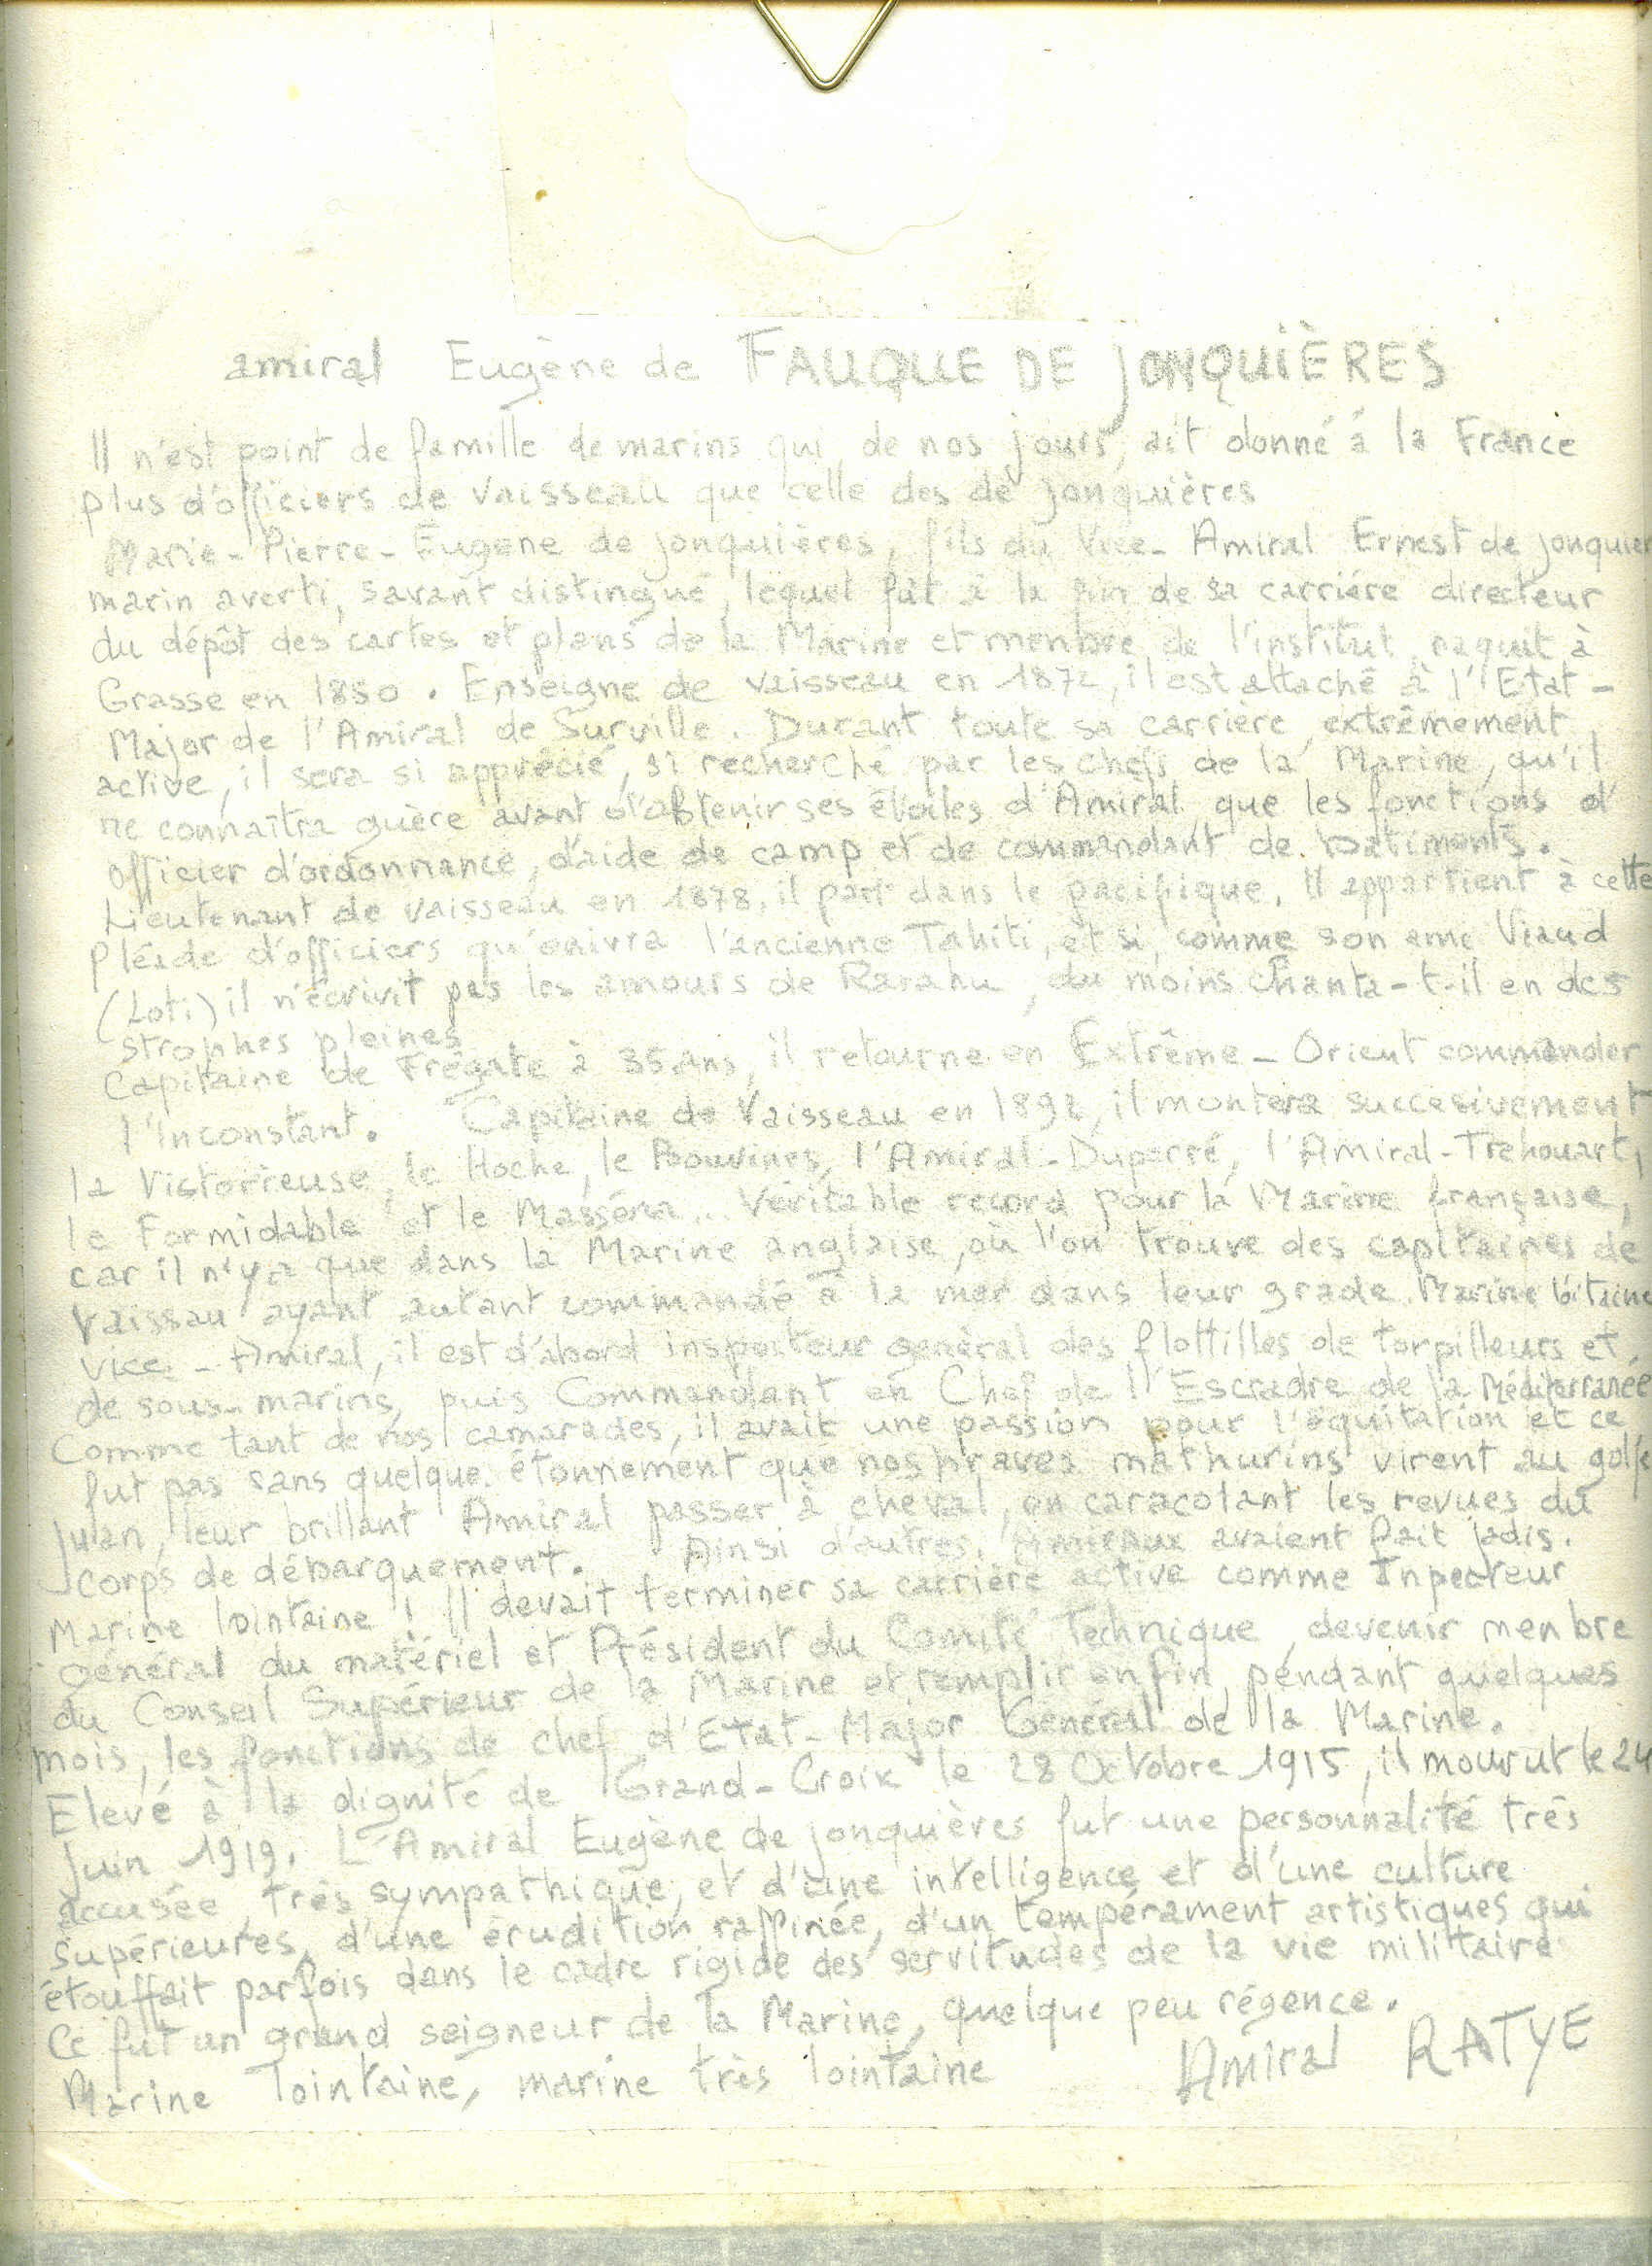 amiral Eugène de FAUQUE DE JONQUIÈRES
Il n'est point de famille de marins qui, de nos jours, ait donné à la France
plus d'officiers de vaisseau que celle des de Jonquières
Marie-Pierre-Eugène de Jonquières, fils du Vice-Amiral Ernest de Jonquier
marin averti, savant distingué, lequel fut à la fin de sa carrière directeur
du dépôt des cartes et plans de la Marine et menbre de l'institut, naquit à
Grasse en 1850. Enseigne de vaisseau en 1872, il est attaché à l'Etat-
Major de l'Amiral de Surville. Durant toute sa carrière, extrêmement
active, il sera si apprécié, si recherché par les chefs de la Marine, qu'il
ne connaîtra guère avant d'obtenir ses étoiles d'Amiral, que les fonctions d'
officier d'ordonnance, d'aide de camp et de commandant de batiments.
Lieutenant de vaisseau en 1878, il part dans le pacifique. Il appartient à cette
Pléiade d'officiers qu'enivra l'ancienne Tahiti, et si, comme son ami Viaud
(Loti) il n'écrivit pas les amours de Rarahu, du moins chanta-t-il en des
strophes pleines
Capitaine de Frégate à 35 ans, il retourne en Extrême-Orient commander
l'Inconstant. Capitaine de Vaisseau en 1892, il montera succesivement
la Victorieuse, le Hoche, le Bouvines, l'Amiral-Duperré, l'Amiral-Trehouart,
le Formidable et le Masséna... Véritable record pour la Marine française,
car il n'y a que dans la Marine anglaise, où l'on trouve des capitaines de
Vaissau ayant autant commandé à la mer dans leur grade. Marine lointaine
Vice-Amiral, il est d'abord inspecteur général des flottilles de torpilleurs et
de sous-marins, puis Commandant en Chef de l'Escradre de la Méditerranée
Comme tant de nos camarades, il avait une passion pour l'équitation et ce
fut pas sans quelque étonnement que nos braves mathurins virent au golfe
Juan, leur brillant Amiral passer à cheval, en caracolant les revues du
corps de débarquement. Ainsi d'autres, Amiraux avaient fait jadis.
Marine lointaine ! Il devait terminer sa carrière active comme Inpecteur
général du matériel et Président du Comité Technique, devenir menbre
du Conseil Supérieur de la Marine et remplir enfin, pendant quelques
mois, les fonctions de chef d'Etat-Major Général de la Marine.
Elevé à la dignité de Grand-Croix le 28 Octobre 1915, il mourut le 24
Juin 1919. L'Amiral Eugène de Jonquières fut une personnalité très
accusée, très sympathique, et d'une intelligence et d'une culture
supérieures, d'une érudition raffinée, d'un tempérament artistiques qui
étouffait parfois dans le cadre rigide des servitudes de la vie militaire
Ce fut un grand seigneur de la Marine, quelque peu régence.
Marine lointaine, marine très lointaine Amiral RATYE